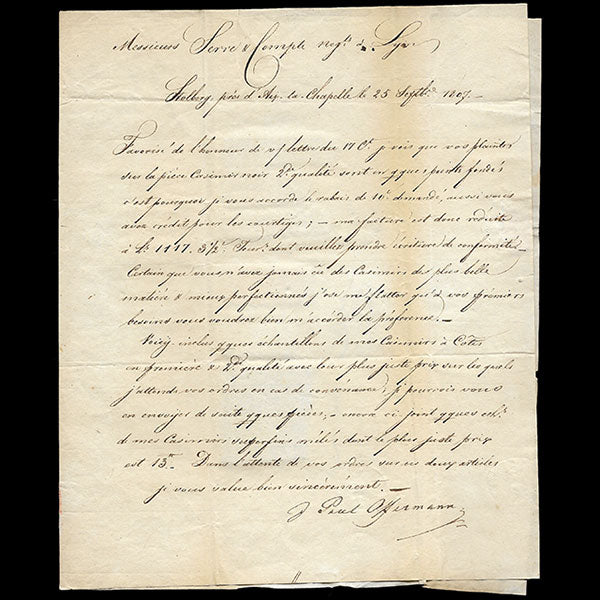 Messieurs Serre & Compe negts à Lyon
Stolberg, près d'Aix-la-Chapelle le 25 Septbre 1807.-
Favorisé de l'honneur de v/ lettre du 17 Ct. je vois que vos plaintes
sur la pièce Casimir noir 2de qualité sont en qque point fondés
c'est pourquoi je vous accorde le rabais de 10c demandé, aussi vous
avez crédit pour les courtiges; - ma facture est donc réduite
à 1117. 3½. Tour: dont veuillez prendre écriture de conformité.
Certain que vous n'avez jamais eu des Casimirs des plus belle
matière & mieux perfectionnés j'ose me flatter qu'à vos premiers
besoins vous voudrez bien m'accorder la préférence. -
Voicy inclus qques échantillons de mes Casimirs à Côtes
en première & 2de qualité avec leur plus juste prix sur lesquels
j'attends vos ordres en cas de convenance; je pourrois vous
en envoyer de suite qques pièces, - encore ci joint qques
de mes Casimirs superfins mêlés dont le plus juste prix
est 13. - Dans l'attente de vos ordres sur ces deux articles
je vous salue bien sincèrement. -
J Paul Offermann